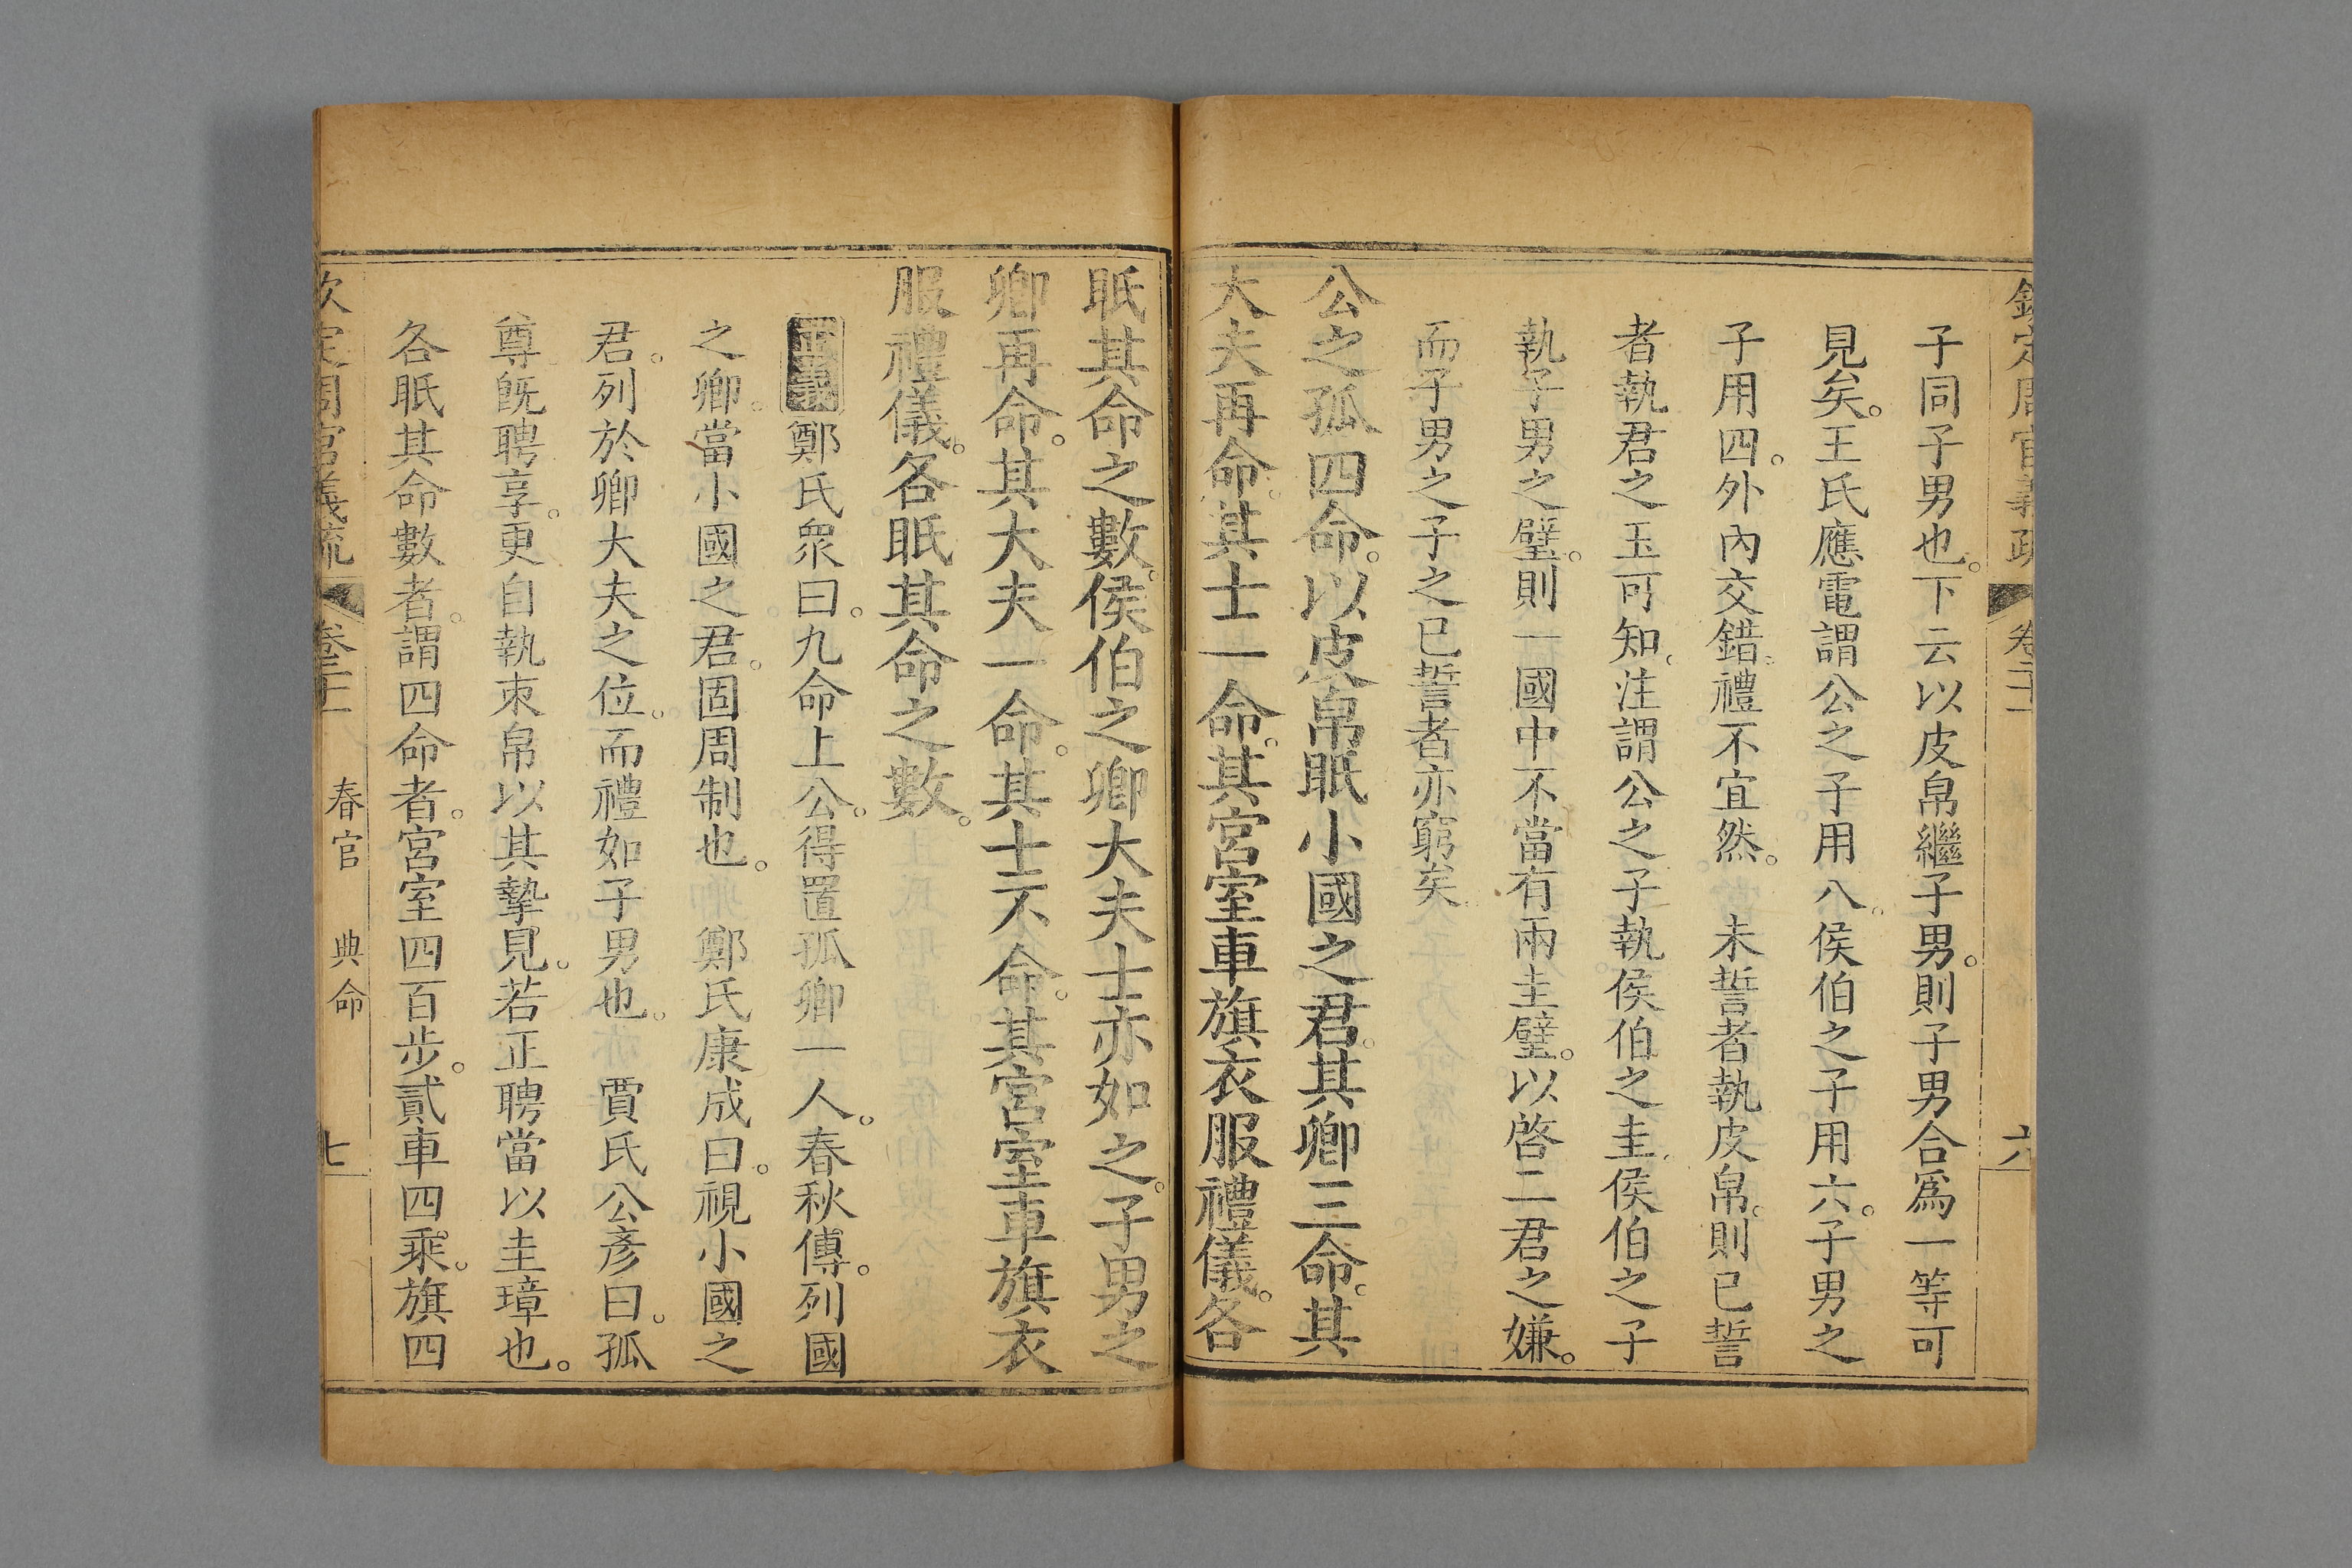 欽定周官義疏 卷二十一 六
子同子男也。下云以皮帛繼子男。則子男合爲一等可
見矣。王氏應電謂公之子用八。侯伯之子用六。子男之
子用四。外內交錯。禮不宜然。 未誓者執皮帛。則已誓
者執君之玉可知。注謂公之子執侯伯之圭。侯伯之子
執子男之璧。則一國中不當有兩圭璧。以啓二君之嫌。
而子男之子之已誓者亦窮矣。
公之孤四命。以皮帛眂小國之君。其卿三命。其
大夫再命。其士一命。其宮室車旗衣服禮儀。各
眂其命之數。侯伯之卿大夫士亦如之。子男之
卿再命。其大夫一命。其士不命。其宮室車旗衣
服禮儀。各眂其命之數。
正義 鄭氏眾曰。九命上公。得置孤卿一人。春秋傳。列國
之卿。當小國之君。固周制也。 鄭氏康成曰。視小國之
君。列於卿大夫之位。而禮如子男也。 賈氏公彥曰。孤
尊旣聘享。更自執束帛以其摯見。若正聘當以圭璋也。
各眂其命數者。謂四命者。宮室四百步。貳車四乘。旗四
欽定周官義疏 卷二十一 春官 典命 七